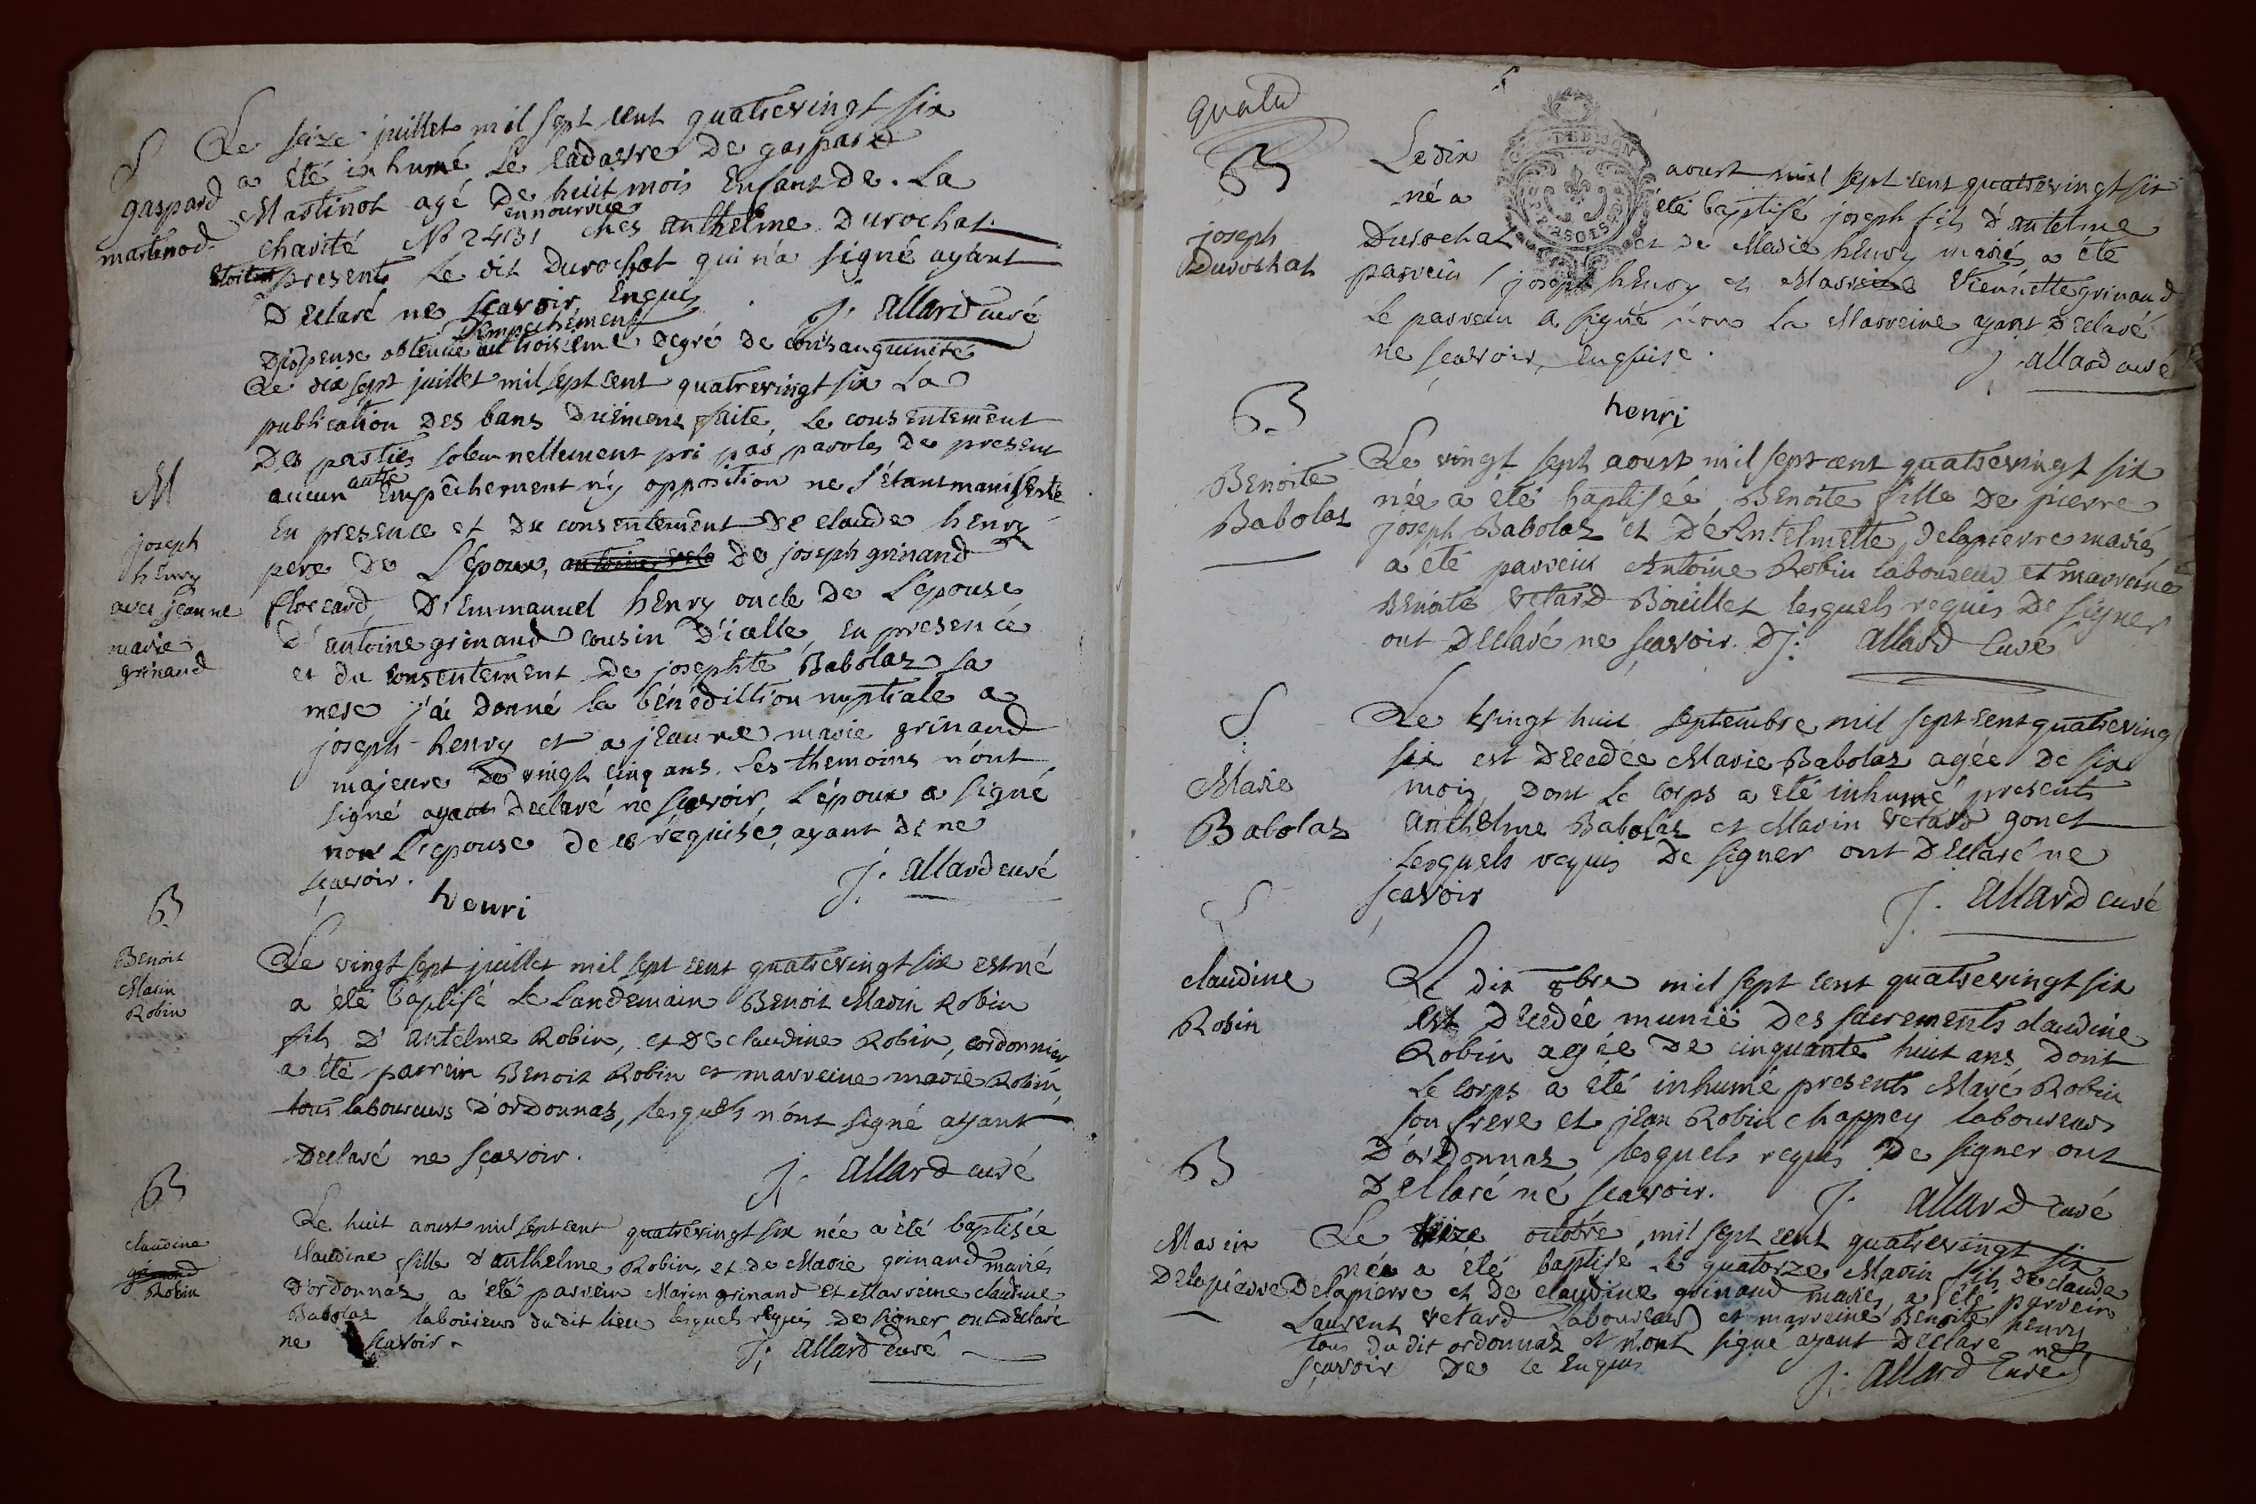 S
gaspard
martinod
Le seize juillet mil sept cent quatrevingt six
a été inhumé le cadavre de gaspard
Martinot agé de huit mois Enfant de la
en nourrice
charité No 2431 ches anthelme Durochat
present le dit Durochat qui n'a signé ayant
Declaré ne scavoir Enquis
J. allard curé
D'empechement
Dispense obtenue au troisieme degré de consanguinité
M
joseph
henry
avec jeanne
marie
grinand
Le dix sept juillet mil sept cent quatrevingt six La
publication des bans düement faite, Le consentement
Des parties solemnellement pri par paroles de present
aucun autre Empêchement n'y opposition ne s'étant manifesté
En presence et du consentement de claude henry
pere de L'époux, De joseph grinand
floccard, D'Emmanuel henry oncle de L'épouse
D'antoine grinand cousin D'icelle, En presence
et du consentement de josephte Babolaz sa
mere j'ai donné la bénédiction nuptiale a
joseph henry et a jeanne marie grinand
majeure de vingt cinq ans. Les themoins n'ont
signé ayant Declaré ne scavoir, L'époux a signé
non L'épouse de ce réquise, ayant D. ne
scavoir.
J. allard curé
henri
B
Benoit
Marin
Robin
Le vingt sept juillet mil sept cent quatrevingt six est né
a été baptisé Le Landemain Benoit Marin Robin
fils D'antelme Robin, et de claudine Robin, cordonnier
a été parrein Benoit Robin et marreine marie Robin,
tous laboureurs D'ordonnaz, lesquels n'ont signé ayant
Declaré ne scavoir.
J. allard curé
B
claudine
grinand
Robin
Le huit aoust mil sept cent quatrevingt six née a été baptisée
claudine fille d'anthelme Robin, et de Marie grinand mariés
D'ordonnaz a été parrein Marin grinand et Marreine claudine
Babolaz laboureurs du dit lieu lesquels requis de signer ont Declaré
ne scavoir.
J. allard curé
quatre
B
joseph
Durochat
Le dix aoust mil sept cent quatrevingt six
né a été baptisé joseph fils D'antelme
Durochat et de Marie henry mariés a été
parrein joseph henry et Marreine Viennette grinand
Le parrein a signé non La Marreine ayant Declaré
ne scavoir, enquise.
J. allard curé
henri
B
Benoite
Babolaz
Le vingt sept aoust mil sept cent quatrevingt six
née a été baptisée Benoite fille de pierre
joseph Babolaz et D'Antelmette Delapierre mariés
a été parrein Antoine Robin laboureur et marreine
Benoite Vetard Bouillet lesquels requis De signer
ont Declaré ne scavoir. D J. allard Curé
S
Marie
Babolaz
Le vingt huit septembre mil sept cent quatreving
six est Decedée Marie Babolaz agée De six
mois, dont Le Corps a été inhumé presents
anthelme Babolaz et Marin Vetard gonet
Lesquels requis De signer ont Declaré ne
scavoir
J. allard curé
S
claudine
Robin
Le dix 8bre mil sept cent quatrevingt six
est Decedée muniё des sacrements claudine
Robin agée De cinquante huit ans, Dont
Le Corps a été inhumé presents Maré Robin
son frere et jean Robin chappey laboureurs
D'ordonnaz, lesquels requis De signer ont
Declaré né scavoir.
J. allard curé
B
Marin
Delapierre
Le treize octobre mil sept cent quatrevingt six
née a été baptisé Le quatorze Marin fils de claude
Delapierre et de claudine grinand mariés, a été parrein
Laurent Vetard Laboureur et marreine Benoite henry
tous du dit ordonnaz et n'ont signe ayant Declaré ne
scavoir De ce Enquis
J. allard Curé